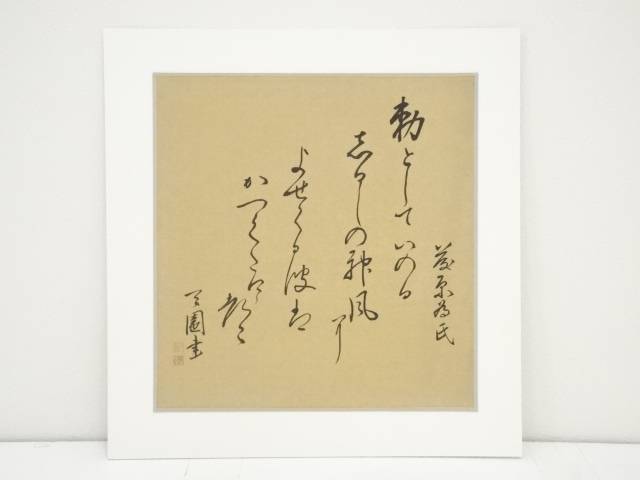 藤原為氏
勅としていのる
志るしの神風尓
よせくる波は
かつくたけ都ゝ
園書